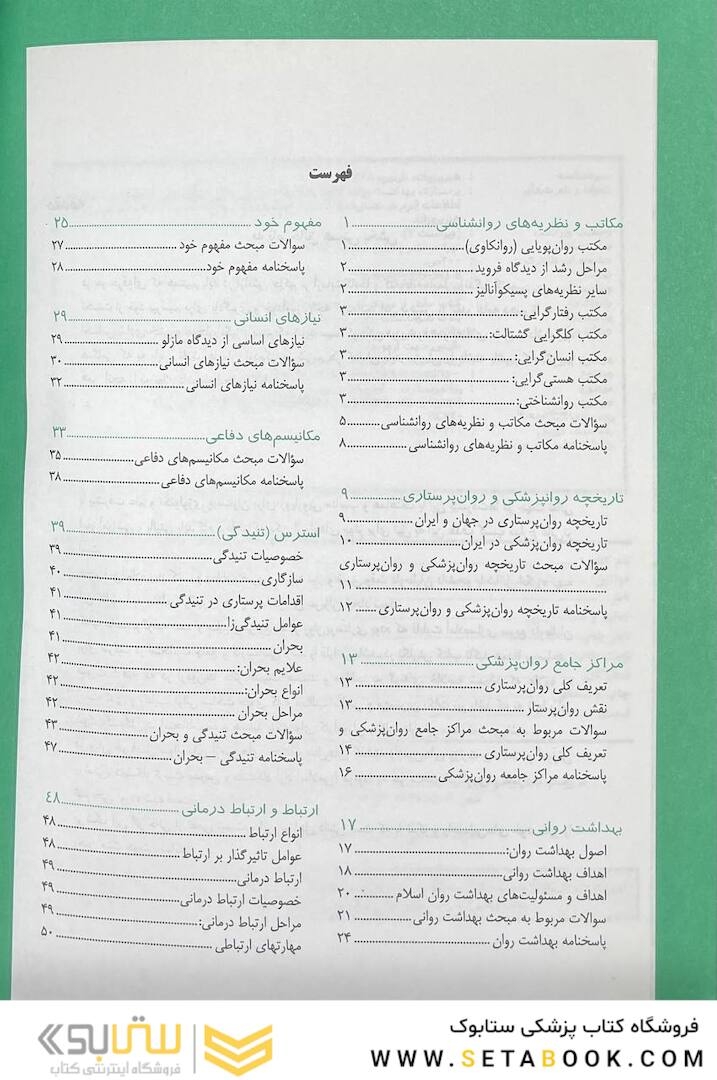 فهرست
مکاتب و نظریه‌های روانشناسی ۱
مکتب روان‌پویایی (روانکاوی) ۱
مراحل رشد از دیدگاه فروید ۲
سایر نظریه‌های پسیکوآنالیز ۲
مکتب رفتارگرایی: ۳
مکتب کلگرایی گشتالت: ۳
مکتب انسان‌گرایی: ۳
مکتب هستی‌گرایی: ۳
مکتب روانشناختی: ۳
سؤالات مبحث مکاتب و نظریه‌های روانشناسی ۵
پاسخنامه مکاتب و نظریه‌های روانشناسی ۸
تاریخچه روانپزشکی و روان‌پرستاری ۹
تاریخچه روان‌پرستاری در جهان و ایران ۹
تاریخچه روان‌پزشکی در ایران ۱۰
سؤالات مبحث تاریخچه روان‌پزشکی و روان‌پرستاری
۱۱
پاسخنامه تاریخچه روان‌پزشکی و روان‌پرستاری ۱۲
مراکز جامع روان‌پزشکی ۱۳
تعریف کلی روان‌پرستاری ۱۳
نقش روان‌پرستار ۱۳
سوالات مربوط به مبحث مراکز جامع روان‌پزشکی و
تعریف کلی روان‌پرستاری ۱۴
پاسخنامه مراکز جامعه روان‌پزشکی ۱۶
بهداشت روانی ۱۷
اصول بهداشت روان: ۱۷
اهداف بهداشت روانی ۱۸
اهداف و مسئولیت‌های بهداشت روان اسلام ۲۰
سوالات مربوط به مبحث بهداشت روانی ۲۱
پاسخنامه بهداشت روان ۲۴
مفهوم خود ۲۵
سوالات مبحث مفهوم خود ۲۷
پاسخنامه مفهوم خود ۲۸
نیازهای انسانی ۲۹
نیازهای اساسی از دیدگاه مازلو ۲۹
سؤالات مبحث نیازهای انسانی ۳۰
پاسخنامه نیازهای انسانی ۳۲
مکانیسم‌های دفاعی ۳۳
سؤالات مبحث مکانیسم‌های دفاعی ۳۵
پاسخنامه مکانیسم‌های دفاعی ۳۸
استرس (تنیدگی) ۳۹
خصوصیات تنیدگی ۳۹
سازگاری ۴۰
اقدامات پرستاری در تنیدگی ۴۱
عوامل تنیدگی‌زا ۴۱
بحران ۴۱
علایم بحران: ۴۲
انواع بحران: ۴۲
مراحل بحران ۴۲
سؤالات مبحث تنیدگی و بحران ۴۳
پاسخنامه تنیدگی – بحران ۴۷
ارتباط و ارتباط درمانی ۴۸
انواع ارتباط ۴۸
عوامل تاثیرگذار بر ارتباط ۴۸
ارتباط درمانی ۴۹
خصوصیات ارتباط درمانی ۴۹
مراحل ارتباط درمانی: ۴۹
مهارتهای ارتباطی ۵۰
فروشگاه کتاب پزشکی ستابوک
WWW.SETABOOK.COM
ستابوک
فروشگاه اینترنتی کتاب